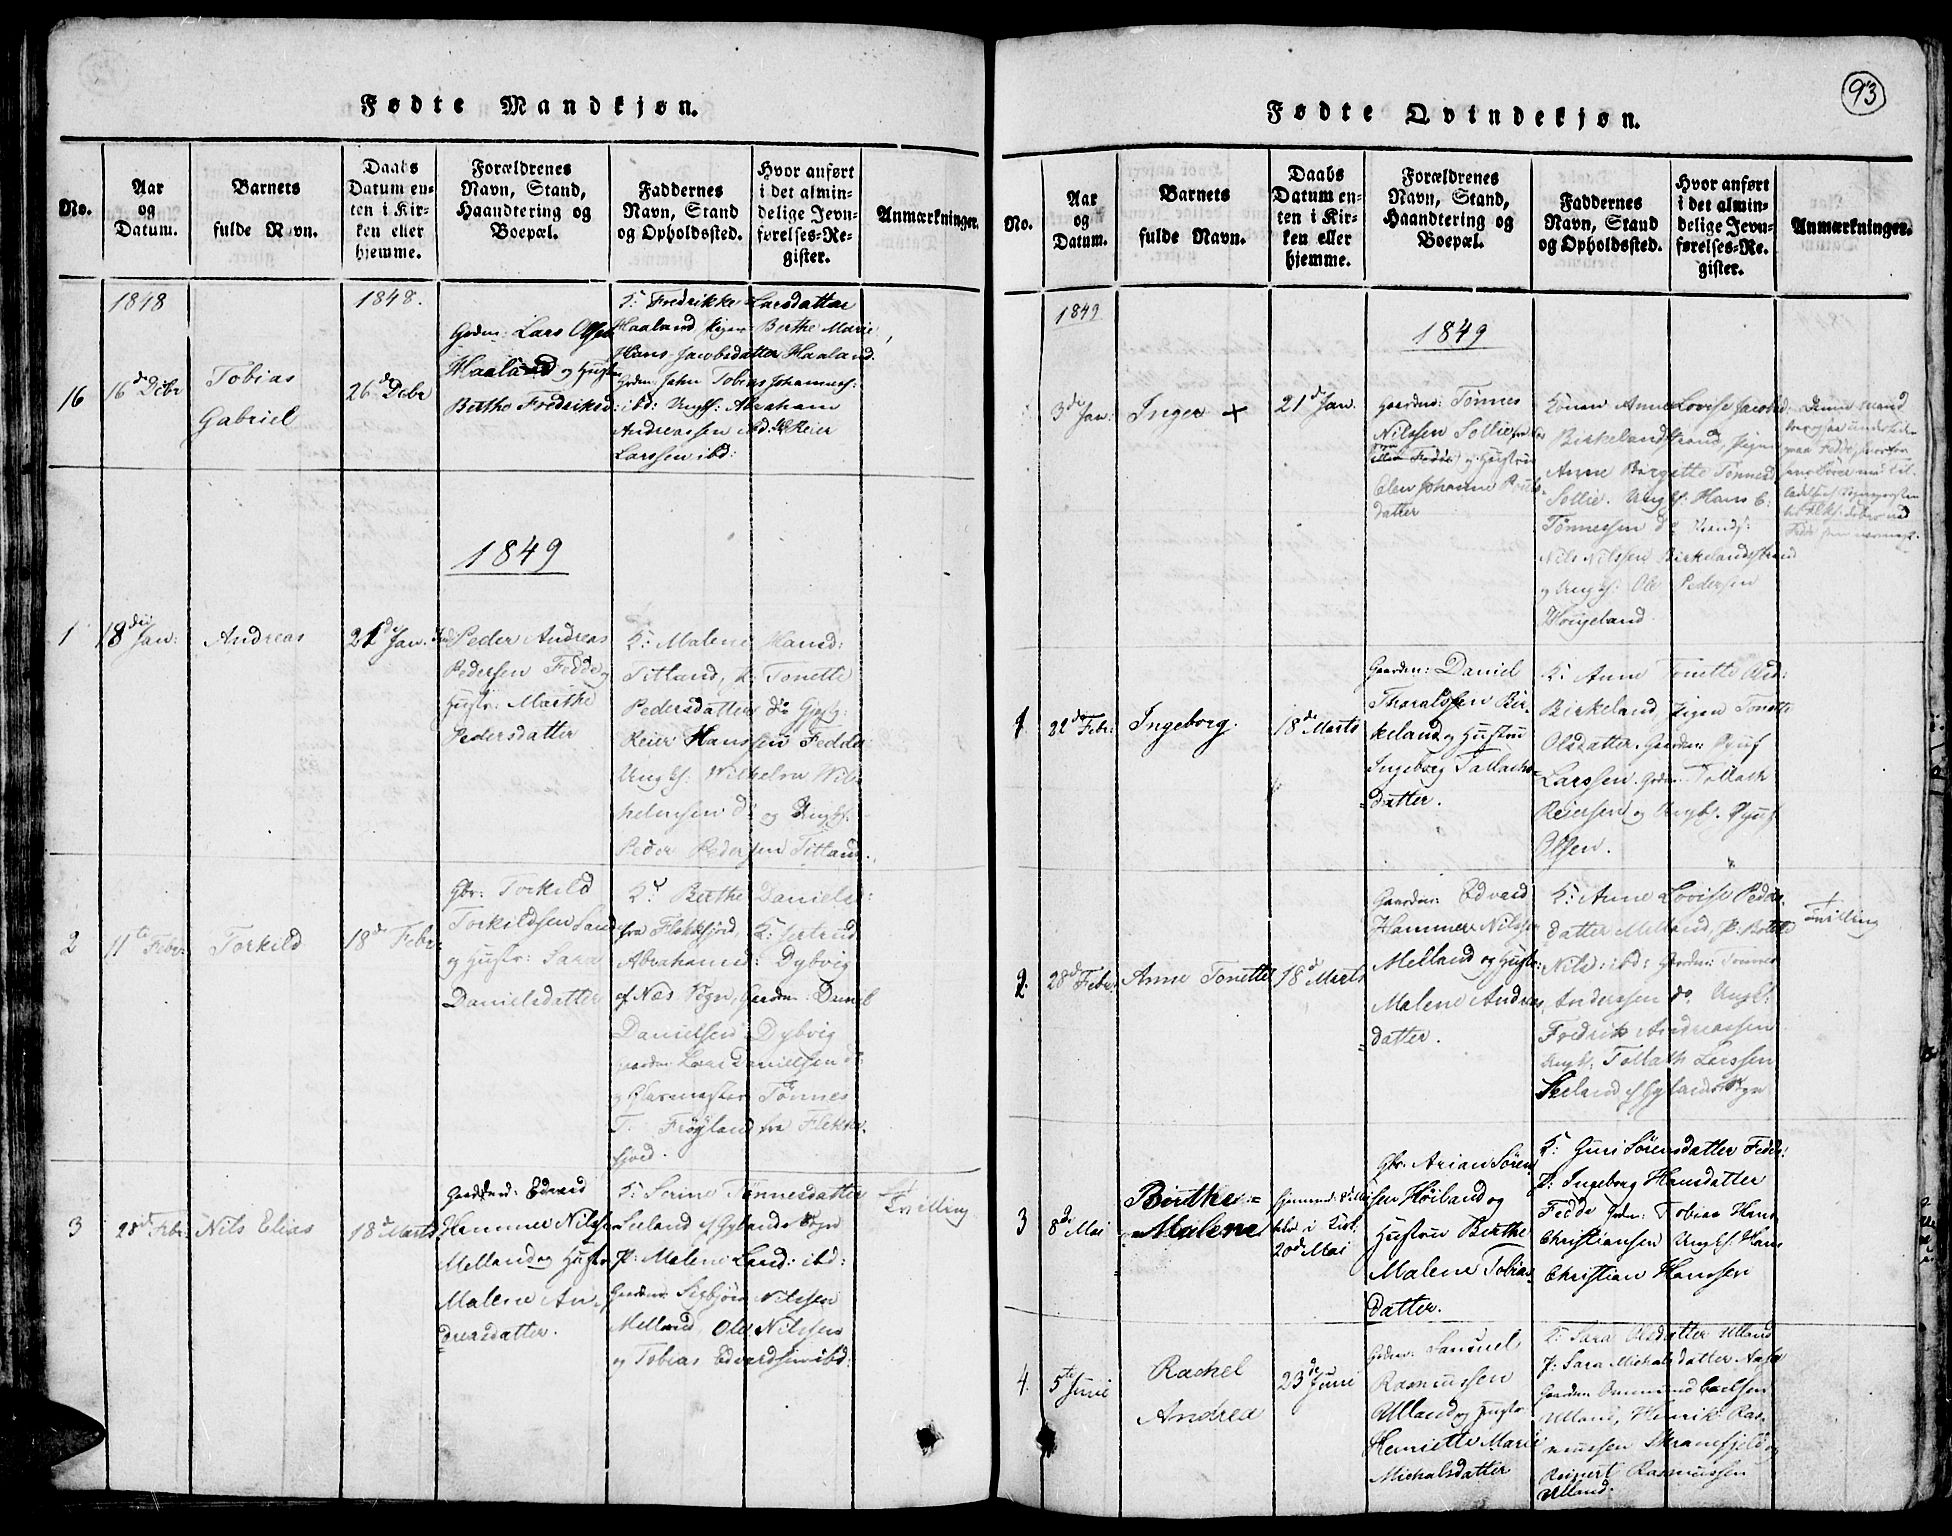 Fødte Mandkjøn.
No.
Aar
og
Datum.
Barnets
fulde Navn.
Daabs
Datum en-
ten i Kir-
ken eller
hjemme.
Forældrenes
Navn, Stand,
Haandtering og
Boepæl.
Faddernes
Navn, Stand
og Opholdssted.
Hvor anført
i det almin-
delige Jevn-
førelses-Re-
gister.
Anmærkninger.
1848
1848.
16
16de Decbr
Tobias
Gabriel
26de Decbr
Gdm: Lars Olsen
Haaland og Hustru
Berthe Fredriksd:
K: Fredrikke Larsdatter
Haaland, Pigen Berthe Marie
Hans Jacobsdatter Haaland.
Gdm: John Tobias Johannes:
ibd: Ungk: Abraham
Andreassen ibd: Reier
Larssen ibd:
1849
1
18de
Jan:
Andreas
21de Jan.
Peder Andreas
Pedersen Fedde og
Hustr: Marthe
Pedersdatter
K: Malene Hansd:
Titland, P. Tonette
Pedersdatter do
Reier Hanssen Fedde
Ungk: Wilhelm Wil-
helmsen do og Ungk:
Peder Pedersen Titland.
2
11te Febr:
Torkild
18de Febr:
Gbr: Torkild
Torkildsen Sand
og Hustr: Sara
Danielsdatter
K: Berthe Daniels:
fra Flekkfjord, K: Gertrud
Abrahamsd: Dybvig
af Næs Sogn, Gaardm: Daniel
Danielsen Dybvig
Gaardm: Lars Danielsen do
og Glarmester Tønnes
T. Frøyland fra Flekke-
fjord.
3
28de Febr:
Nils Elias
18de Marts
Gaardm: Edvard
Hammer Nilssen
Melland og Hustr
Malene An-
dreasdatter.
K: Serine Tønnesdatter
Seeland af Gylands Sogn
P: Malene Land: ibd:
Gaardm: Sigbjørn Nilssen
Melland, Ole Nilssen
og Tobias Edvardsen ibd:
Tvilling
93
Fødte Qvindekjøn.
No.
Aar
og
Datum.
Barnets
fulde Navn.
Daabs
Datum en-
ten i Kir-
ken eller
hjemme.
Forældrenes
Navn, Stand,
Haandtering og
Boepæl.
Faddernes
Navn, Stand
og Opholdssted.
Hvor anført
i det almin-
delige Jevn-
førelses-Re-
gister.
Anmærkninger.
1849
1849
3de Jan:
Inger +
21de Jan.
Gaardm: Tønnes
Nilssen Sollie
og Hustru
Elen Johanne
datter
Konen Anne Lovise Jacobsd:
Birkelandstrand, Pigen
Anne Birgitte Tønnesd
Sollie. Ungk: Hans E:
Tønnessen do
Nils Nilssen Birkelandsstrand
og Ungk: Ole Pedersen
Hougeland.
1
22de Febr:
Ingeborg.
18de Marts
Gaardm: Daniel
Thoralfsen Bir-
keland og Hustru
Ingeborg Tallachs-
datter.
K: Anne Tonette Olsd:
Birkeland, Pigen Tonette
Olsdatter. Gaardm:
Larssen. Gdm: Tollach
Reiersen og Ungk.
Olsen.
2.
28de Febr:
Anne Tonette
18de Marts
Gaardm: Edvard
Hammer Nilssen
Melland og Hustr:
Malene Andreas
datter.
K: Anne Lovise Peders
datter Melland,
Nilsd: ibd: Gaardm: Tønnes
Anderssen do. Ungk:
Fredrik Andreassen
Ungk: Tollath Larssen
Seeland af Gylands Sogn
+
Tvilling
3
8de Mai
Berthe
Malene
20de Mai
Gbr: Arian Søren
sen Høiland og
Hustru Berthe
Malene Tobias-
datter.
K: Guri Sørensdatter Fedde:
P: Ingeborg Hansdatter
Fedde Gdm: Tobias Hans
Christiansen Ungk: Hans
Christian Hanssen
4.
5te Junii
Rachel
Andrea
23de Junii
Gdm: Samuel
Rasmussen
Ulland og Hustr
Henriette Marie
Michalsdatter
K: Sara Olsdatter Ulland
P: Sara Michalsdatter
Gaardm: Ommund Carlsen
Ulland, Henrik Ras-
mussen Skranefjeld og
Reinert Rasmussen
Ulland.